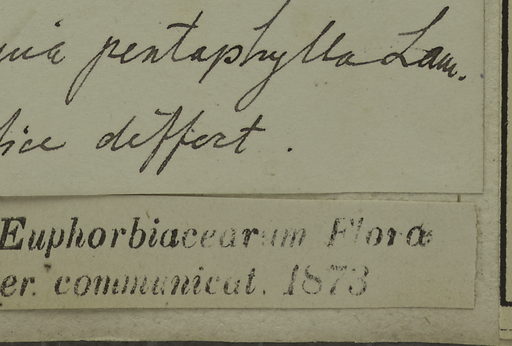 pentaphylla Lam.
differt.
Euphorbiacearum Floræ
er. communicat. 1873